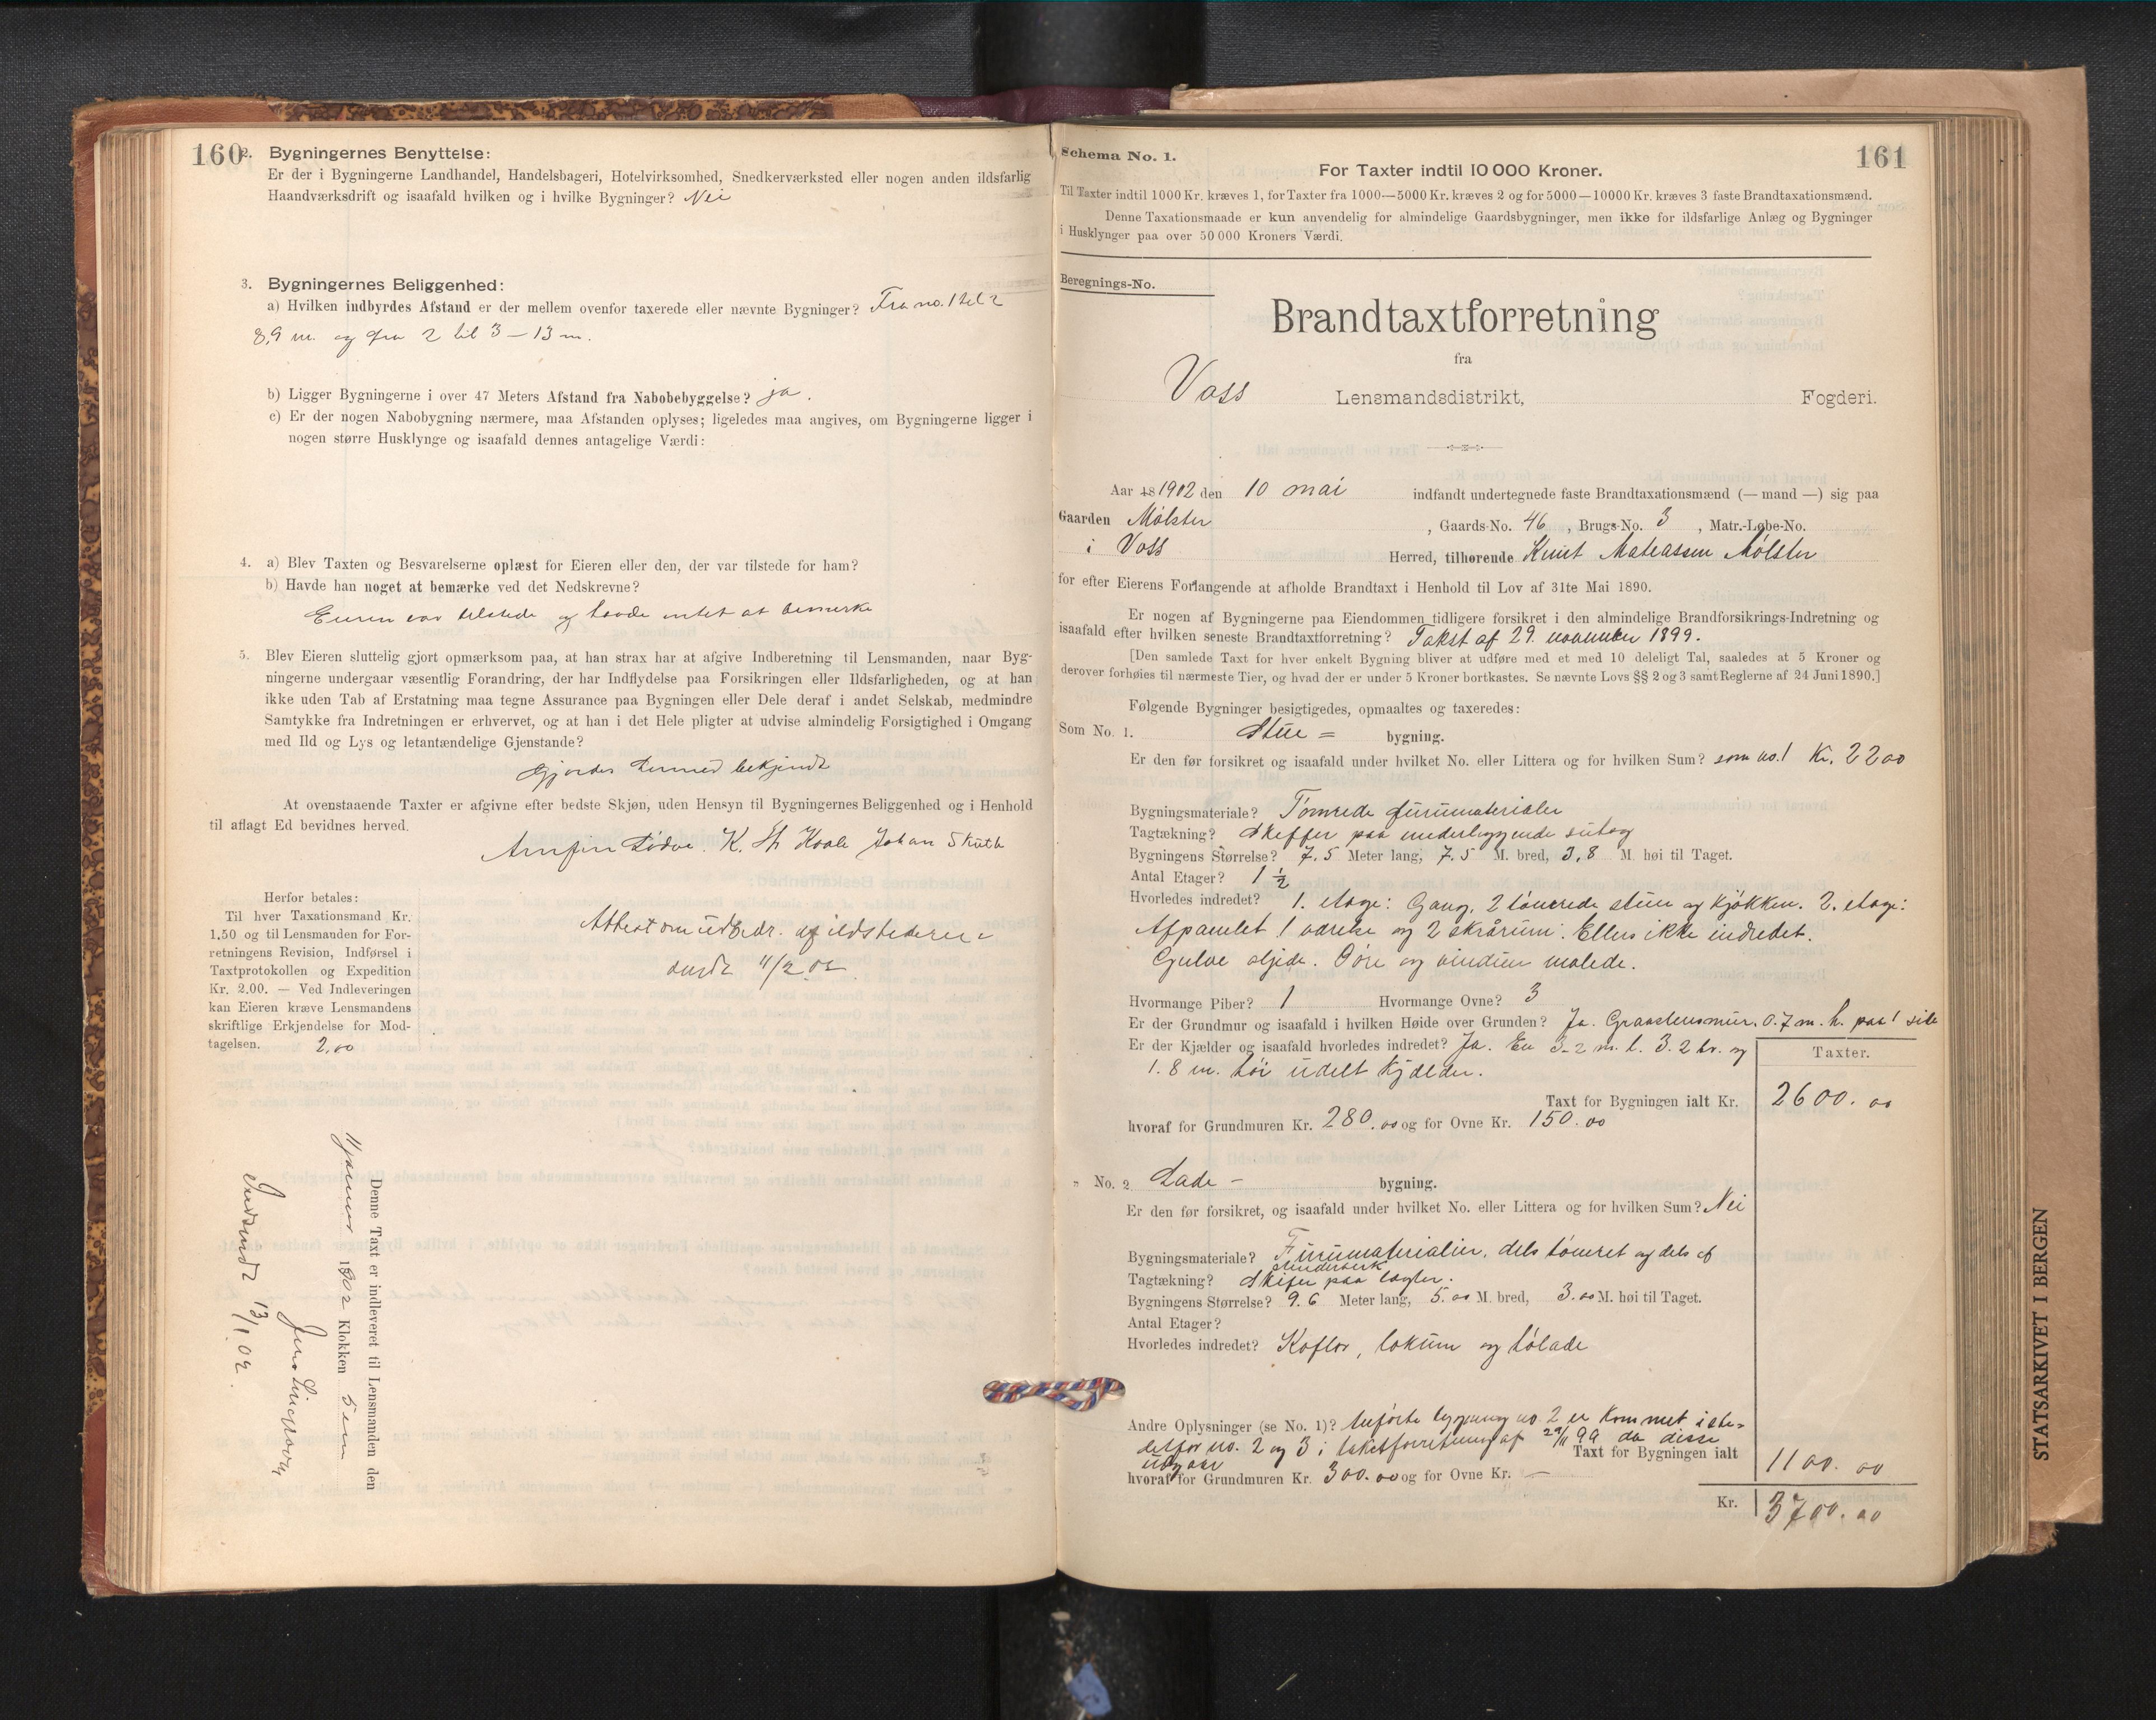 160
2. Bygningernes Benyttelse:
Er der i Bygningerne Landhandel, Handelsbageri, Hotelvirksomhed, Snedkerværksted eller nogen anden ildsfarlig
Haandværksdrift og isaafald hvilken og i hvilke Bygninger? Nei
3. Bygningernes Beliggenhed:
a) Hvilken indbyrdes Afstand er der mellem ovenfor taxerede eller nævnte Bygninger? Fra no. 1 til 2
8,9 m. og fra 2 til 3 – 13 m.
b) Ligger Bygningerne i over 47 Meters Afstand fra Nabobebyggelse? ja.
c) Er der nogen Nabobygning nærmere, maa Afstanden oplyses; ligeledes maa angives, om Bygningerne ligger i
nogen større Husklynge og isaafald dennes antagelige Værdi:
4. a) Blev Taxten og Besvarelserne oplæst for Eieren eller den, der var tilstede for ham?
b) Havde han noget at bemærke ved det Nedskrevne?
Eieren var tilstede og havde intet at bemerke
5. Blev Eieren sluttelig gjort opmærksom paa, at han strax har at afgive Indberetning til Lensmanden, naar Byg-
ningerne undergaar væsentlig Forandring, der har Indflydelse paa Forsikringen eller Ildsfarligheden, og at han
ikke uden Tab af Erstatning maa tegne Assurance paa Bygningen eller Dele deraf i andet Selskab, medmindre
Samtykke fra Indretningen er erhvervet, og at han i det Hele pligter at udvise almindelig Forsigtighed i Omgang
med Ild og Lys og letantændelige Gjenstande?
Gjordes dermed bekjendt
At ovenstaaende Taxter er afgivne efter bedste Skjøn, uden Hensyn til Bygningernes Beliggenhed og i Henhold
til aflagt Ed bevidnes herved.
Arnfin Lødve. K. Johan Skutle
Herfor betales:
Til hver Taxationsmand Kr.
1.50 og til Lensmanden for For-
retningens Revision, Indførsel i
Taxtprotokollen og Expedition
Kr. 2.00. — Ved Indleveringen
kan Eieren kræve Lensmandens
skriftlige Erkjendelse for Mod-
tagelsen. 2,00
Attest om udbedr. af ildstederne
11/2 02
Denne Taxt er indleveret til Lensmanden den
11 januar 1902 Klokken 5 em
Indsendt 13/1 02.
161
Schema No. 1.
For Taxter indtil 10 000 Kroner.
Til Taxter indtil 1000 Kr. kræves 1, for Taxter fra 1000—5000 Kr. kræves 2 og for 5000—10000 Kr. kræves 3 faste Brandtaxationsmænd.
Denne Taxationsmaade er kun anvendelig for almindelige Gaardsbygninger, men ikke for ildsfarlige Anlæg og Bygninger
i Husklynger paa over 50 000 Kroners Værdi.
Beregnings-No.
Brandtaxtforretning
fra
Voss Lensmandsdistrikt, Fogderi.
Aar 18 1902 den 10 mai indfandt undertegnede faste Brandtaxationsmænd (— mand —) sig paa
Gaarden Mølster, Gaards-No. 46, Brugs-No. 3, Matr.-Løbe-No.
i Voss Herred, tilhørende Knut Mateassen Mølster
for efter Eierens Forlangende at afholde Brandtaxt i Henhold til Lov af 31te Mai 1890.
Er nogen af Bygningerne paa Eiendommen tidligere forsikret i den almindelige Brandforsikrings-Indretning og
isaafald efter hvilken seneste Brandtaxtforretning? Takst af 29. november 1899.
[Den samlede Taxt for hver enkelt Bygning bliver at udføre med et med 10 deleligt Tal, saaledes at 5 Kroner og
derover forhøies til nærmeste Tier, og hvad der er under 5 Kroner bortkastes. Se nævnte Lovs §§ 2 og 3 samt Reglerne af 24 Juni 1890.]
Følgende Bygninger besigtigedes, opmaaltes og taxeredes:
Som No. 1. Stue = bygning.
Er den før forsikret og isaafald under hvilket No. eller Littera og for hvilken Sum? som no. 1 Kr. 2200
Bygningsmateriale? Tømrede furumaterialer
Tagtækning? Skiffer paa underliggende sutag
Bygningens Størrelse? 7.5 Meter lang, 7.5 M. bred, 3,8 M. høi til Taget.
Antal Etager? 1 1/2
Hvorledes indredet? 1. etage: Gang, 2 tømrede stuer og kjøkken. 2. etage:
Afpanelet 1 værelse og 2 skrårum. Ellers ikke indredet.
Gulve oljede. Døre og vinduer malede.
Hvormange Piber? 1 Hvormange Ovne? 3
Er der Grundmur og isaafald i hvilken Høide over Grunden? Ja. Graastensmur. 0.7 m. h. paa 1 side
Er der Kjælder og isaafald hvorledes indredet? Ja. En 3.2 m. l. 3.2 br. og
1.8 m. høi udelt kjælder.
Taxter.
Taxt for Bygningen ialt Kr. 2600.00
hvoraf for Grundmuren Kr. 280.00 og for Ovne Kr. 150.00
" No. 2 Lade – bygning.
Er den før forsikret, og isaafald under hvilket No. eller Littera og for hvilken Sum? Nei
Bygningsmateriale? Furumaterialier, dels tømret og dels af
stenderverk
Tagtækning? Skifer paa lægter.
Bygningens Størrelse? 9.6 Meter lang, 5.00 M. bred, 3.00 M. høi til Taget.
Antal Etager?
Hvorledes indredet? Koflor, lokum og hølade
Andre Oplysninger (se No. 1)? Anførte bygning no. 2 er kommet iste-
detfor no. 2 og 3 i takstforretning af 29/11 99 da disse
udgaar
Taxt for Bygningen ialt 1100.00
hvoraf for Grundmuren Kr. 300.00 og for Ovne Kr. —
Kr. 3700.00
STATSARKIVET I BERGEN